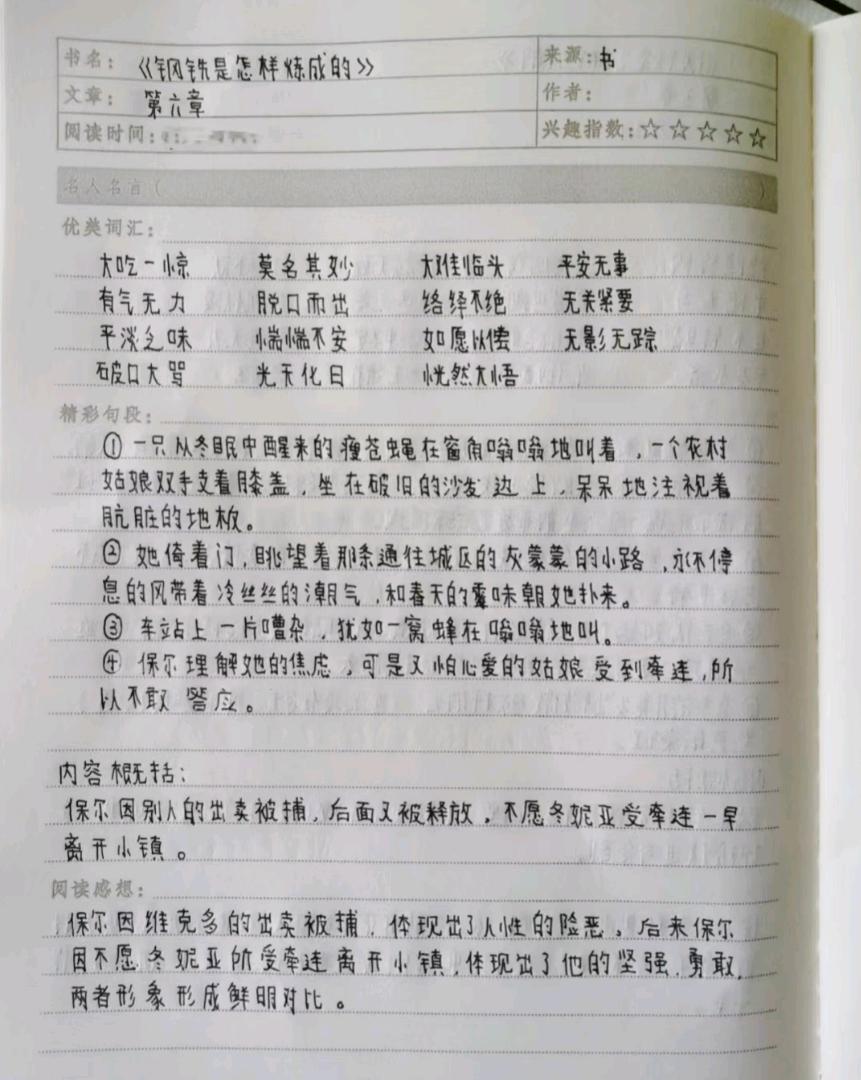 书名：《钢铁是怎样炼成的》 来源：书
文章：第六章 作者：
阅读时间： 兴趣指数：☆☆☆☆☆
名人名言（ ）
优美词汇：
大吃一惊 莫名其妙 大难临头 平安无事
有气无力 脱口而出 络绎不绝 无关紧要
平淡乏味 惴惴不安 如愿以偿 无影无踪
破口大骂 光天化日 恍然大悟
精彩句段：
① 一只从冬眠中醒来的瘦苍蝇在窗角嗡嗡地叫着，一个农村
姑娘双手支着膝盖，坐在破旧的沙发边上，呆呆地注视着
肮脏的地板。
② 她倚着门，眺望着那条通往城区的灰蒙蒙的小路，永不停
息的风带着冷丝丝的潮气，和春天的霉味朝她扑来。
③ 车站上一片嘈杂，犹如一窝蜂在嗡嗡地叫。
④ 保尔理解她的焦虑，可是又怕心爱的姑娘受到牵连，所
以不敢答应。
内容概括：
保尔因别人的出卖被捕，后面又被释放，不愿冬妮亚受牵连一早
离开小镇。
阅读感想：
保尔因维克多的出卖被捕，体现出了人性的险恶。后来保尔
因不愿冬妮亚所受牵连离开小镇，体现出了他的坚强，勇敢，
两者形象形成鲜明对比。